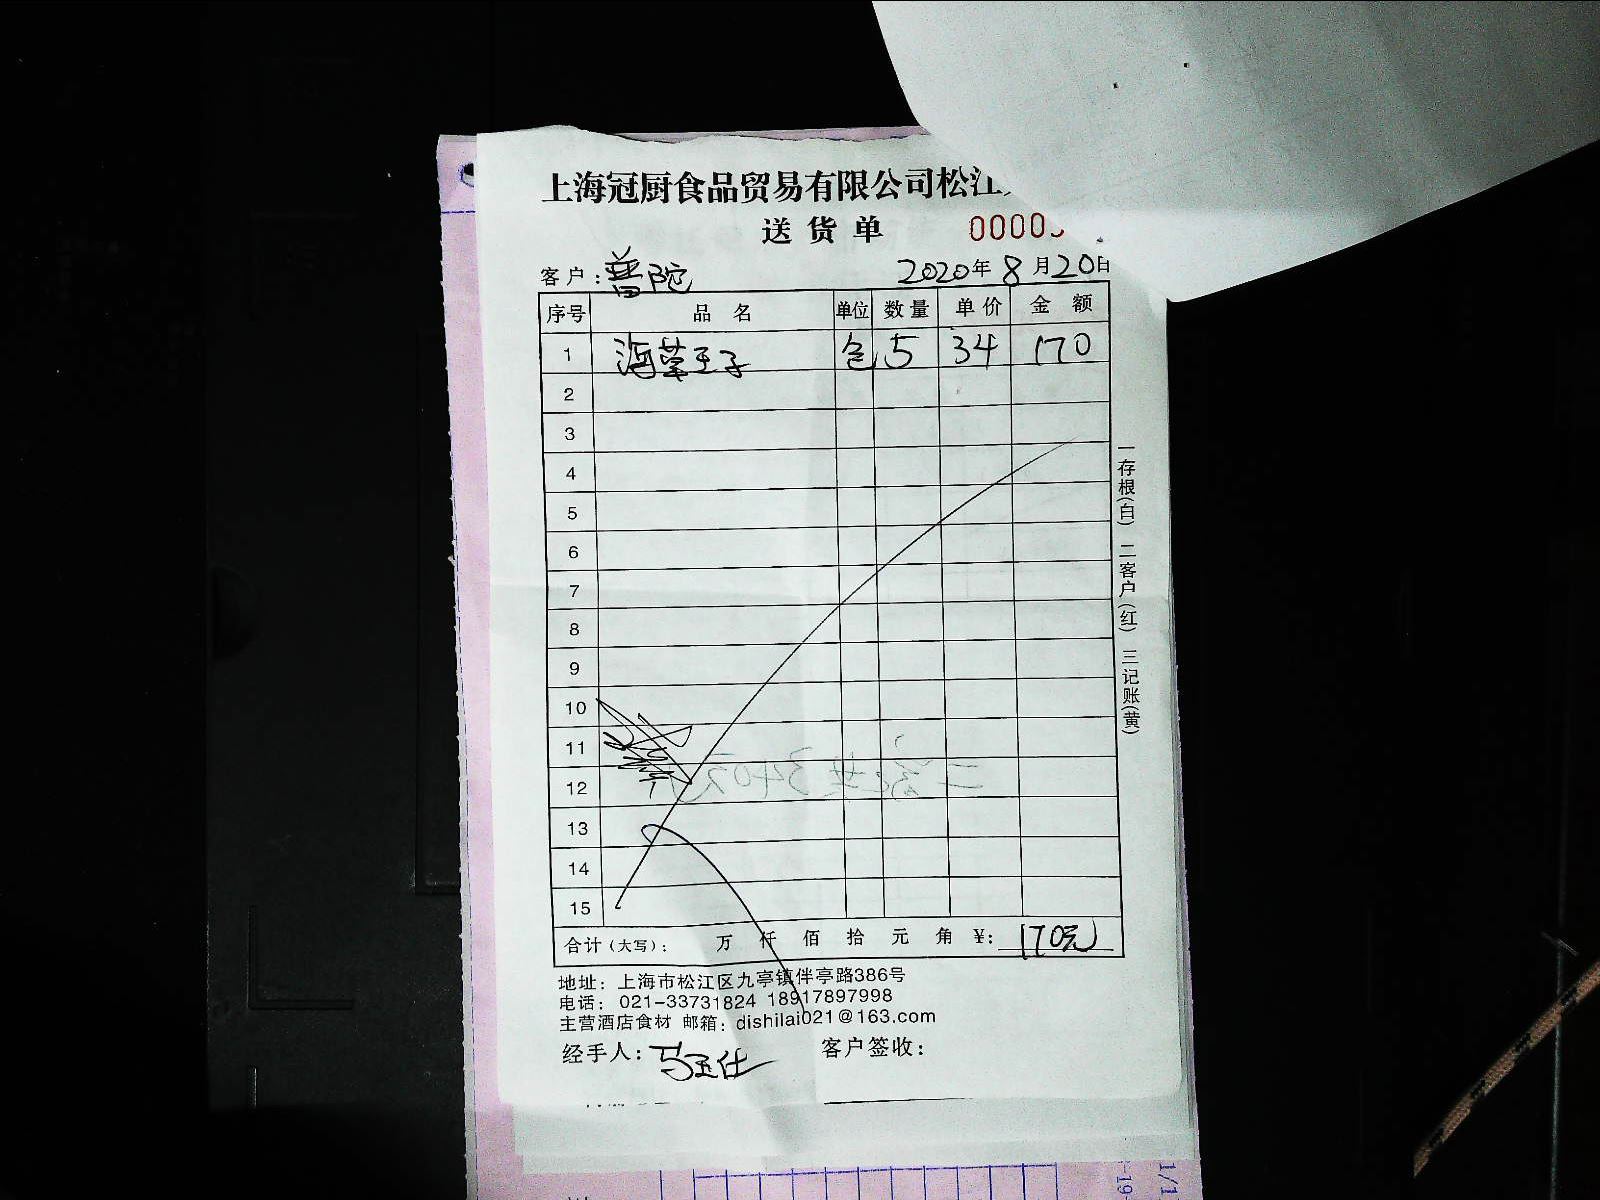 上海冠厨食品贸易有限公司松江
送货单 0000
客户：普陀 2020年8月20日
序号 品名 单位 数量 单价 金额
1 海草王子 包 5 34 170
2
3
4
5
6
7
8
9
10
11
12
13
14
15
合计（大写）： 万 仟 佰 拾 元 角 ￥：170元
地址：上海市松江区九亭镇伴亭路386号
电话：021-33731824 18917897998
主营酒店食材 邮箱：dishilai021@163.com
经手人：马玉仕 客户签收：
一存根(白) 二客户(红) 三记账(黄)